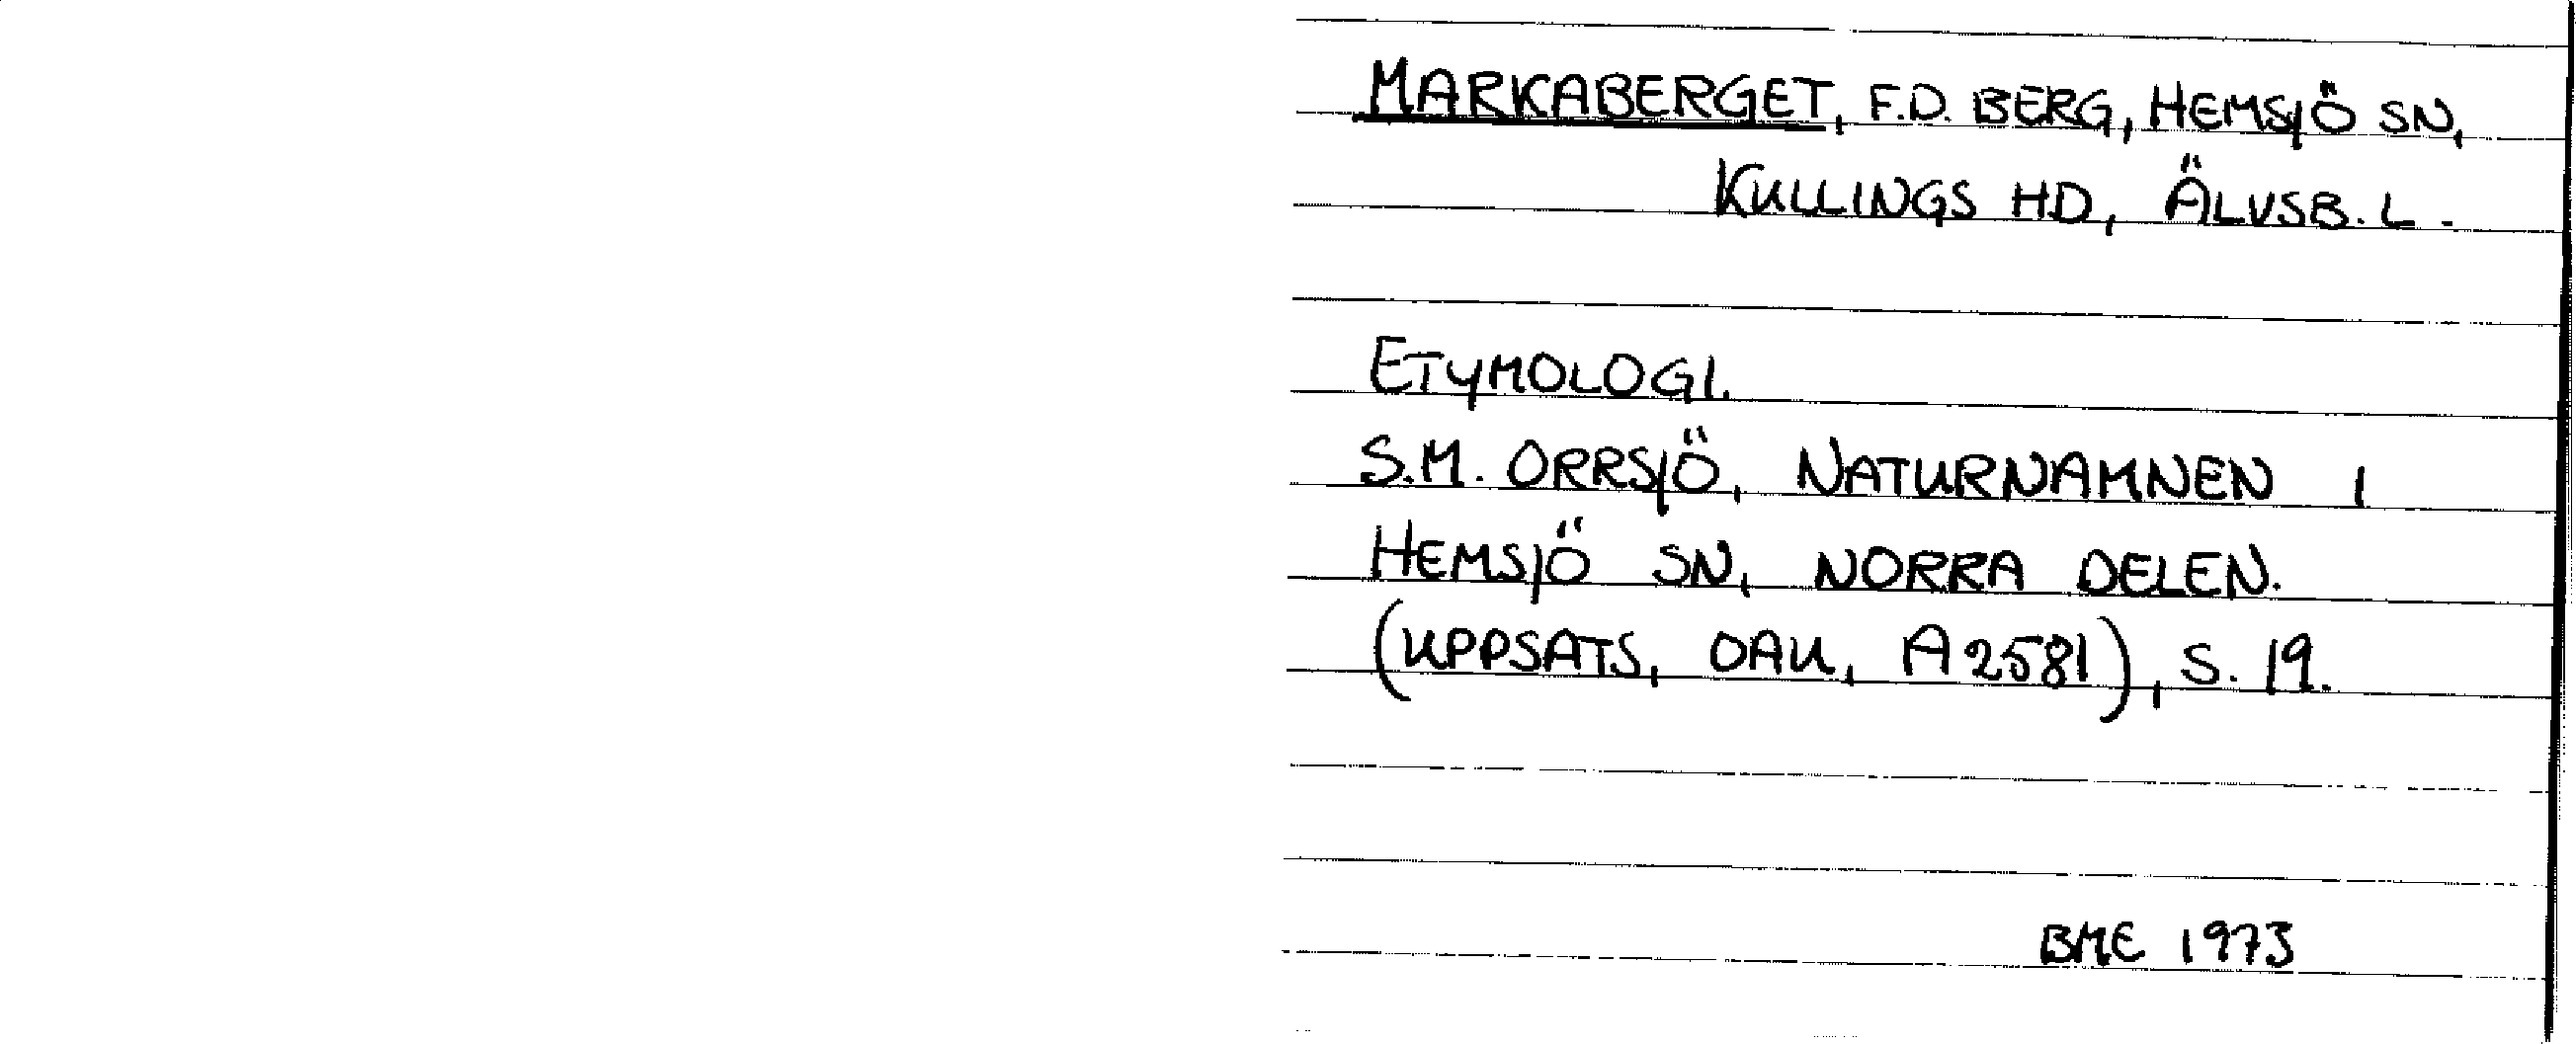 MARKABERGET, F.D. BERG, HEMSJÖ SN,
KULLINGS HD, ÄLVSB. L.
ETYMOLOGI.
S.M. ORRSJÖ, NATURNAMNEN I
HEMSJÖ SN, NORRA DELEN.
(UPPSATS, OAU, A2581), S. 19.
BME 1973